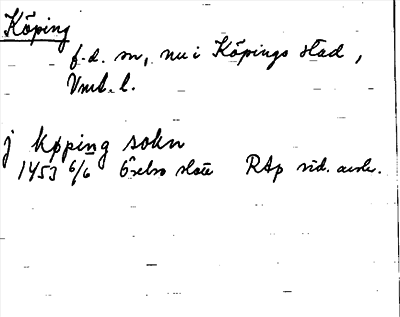 Köping
f.d. sn, nu i Köpings stad,
Vml. l.
j køping sokn
1453 6/6 Örebro slott RAp vid. avskr.